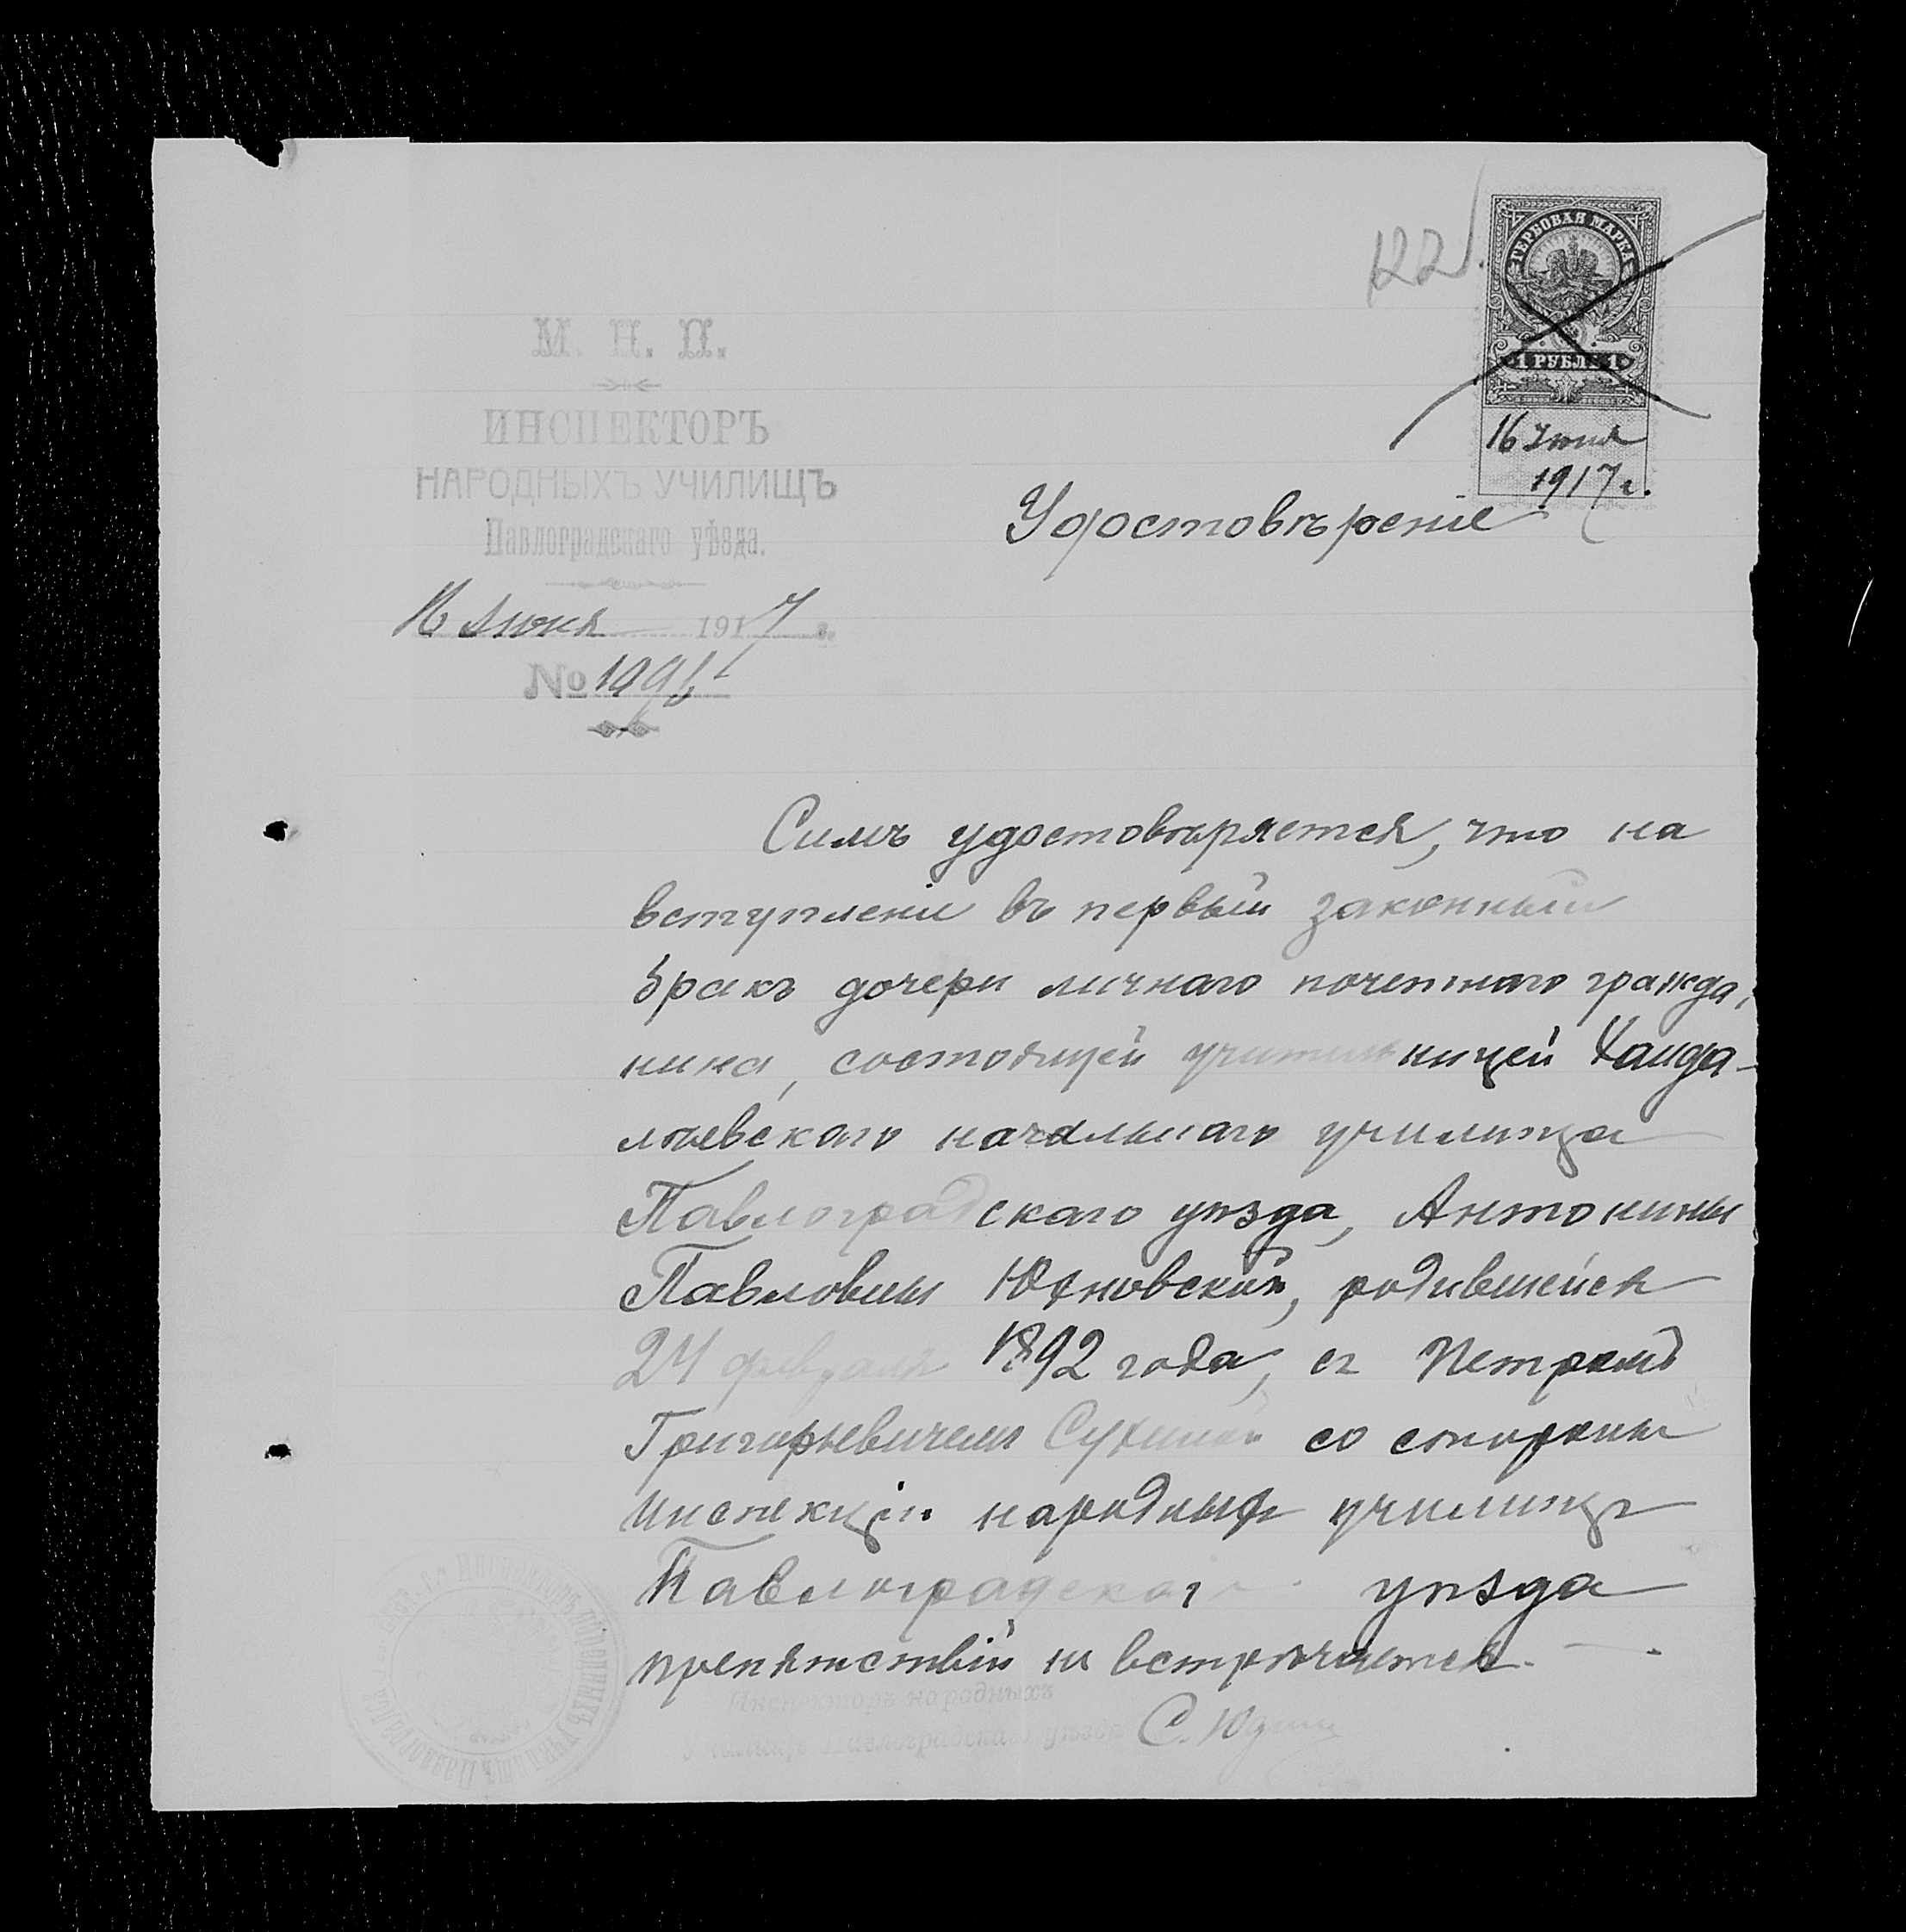 122
ГЕРБОВАЯ МАРКА
1 РУБЛЬ 1
16 Июня
1917 г.
М. Н. П.
ИНСПЕКТОРЪ
НАРОДНЫХЪ УЧИЛИЩЪ
Павлоградскаго уѣзда.
16 Июня 1917 г.
№
Удостовѣреніе
Симъ удостовѣряется, что на
вступленіе въ первый законный
бракъ дочери личнаго почетнаго гражда-
нина, состоящей учительницей Ханда-
лѣевскаго начальнаго училища
Павлоградскаго уѣзда, Антонины
Павловны Юхновской, родившейся
24 февраля 1892 года, съ Петромъ
Григорьевичемъ Сухиной со стороны
инспекціи народныхъ училищъ
Павлоградскаго уѣзда
препятствій не встрѣчается.
Инспекторъ народныхъ
училищъ Павлоградскаго уѣзда С. Юдинъ